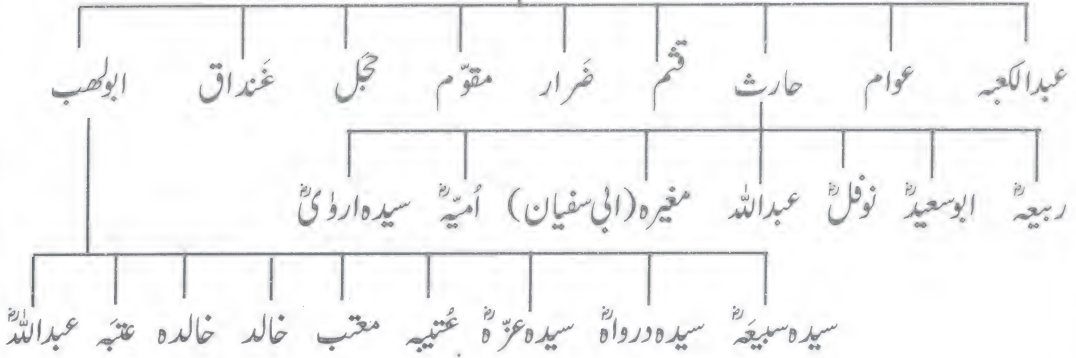 عبدالکعبہ عوام حارث قثم ضَرار مقوّم حَجَل غَنداق ابولھب
ربیعہؓ ابوسعیدؓ نوفلؓ عبداللہ مغیرہ (ابی سفیان) اُمیّہؓ سیدہ ارویٰؓ
سیدہ سبیعَہؓ سیدہ درواہؓ سیدہ عزّہؓ عُتیبہ معتب خالد خالدہ عتبَہ عبداللہؓ